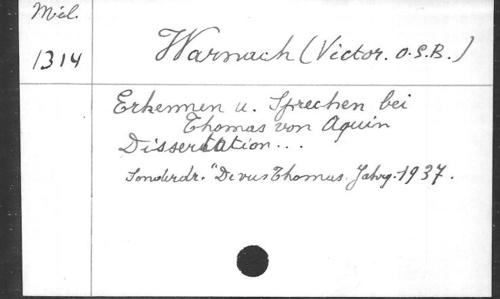 Mél.
1314
Warnach (Victor. O.S.B.)
Erkennen u. Sprechen bei
Thomas von Aquin
Dissertation...
Sonderdr. "Divus Thomas. Jahrg. 1937.